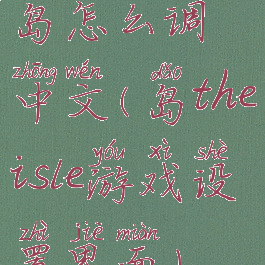 岛怎么调
zhōng wén dǎo
中文(岛the
yóu xì shè
isle游戏设
zhì jiè miàn
置界面)